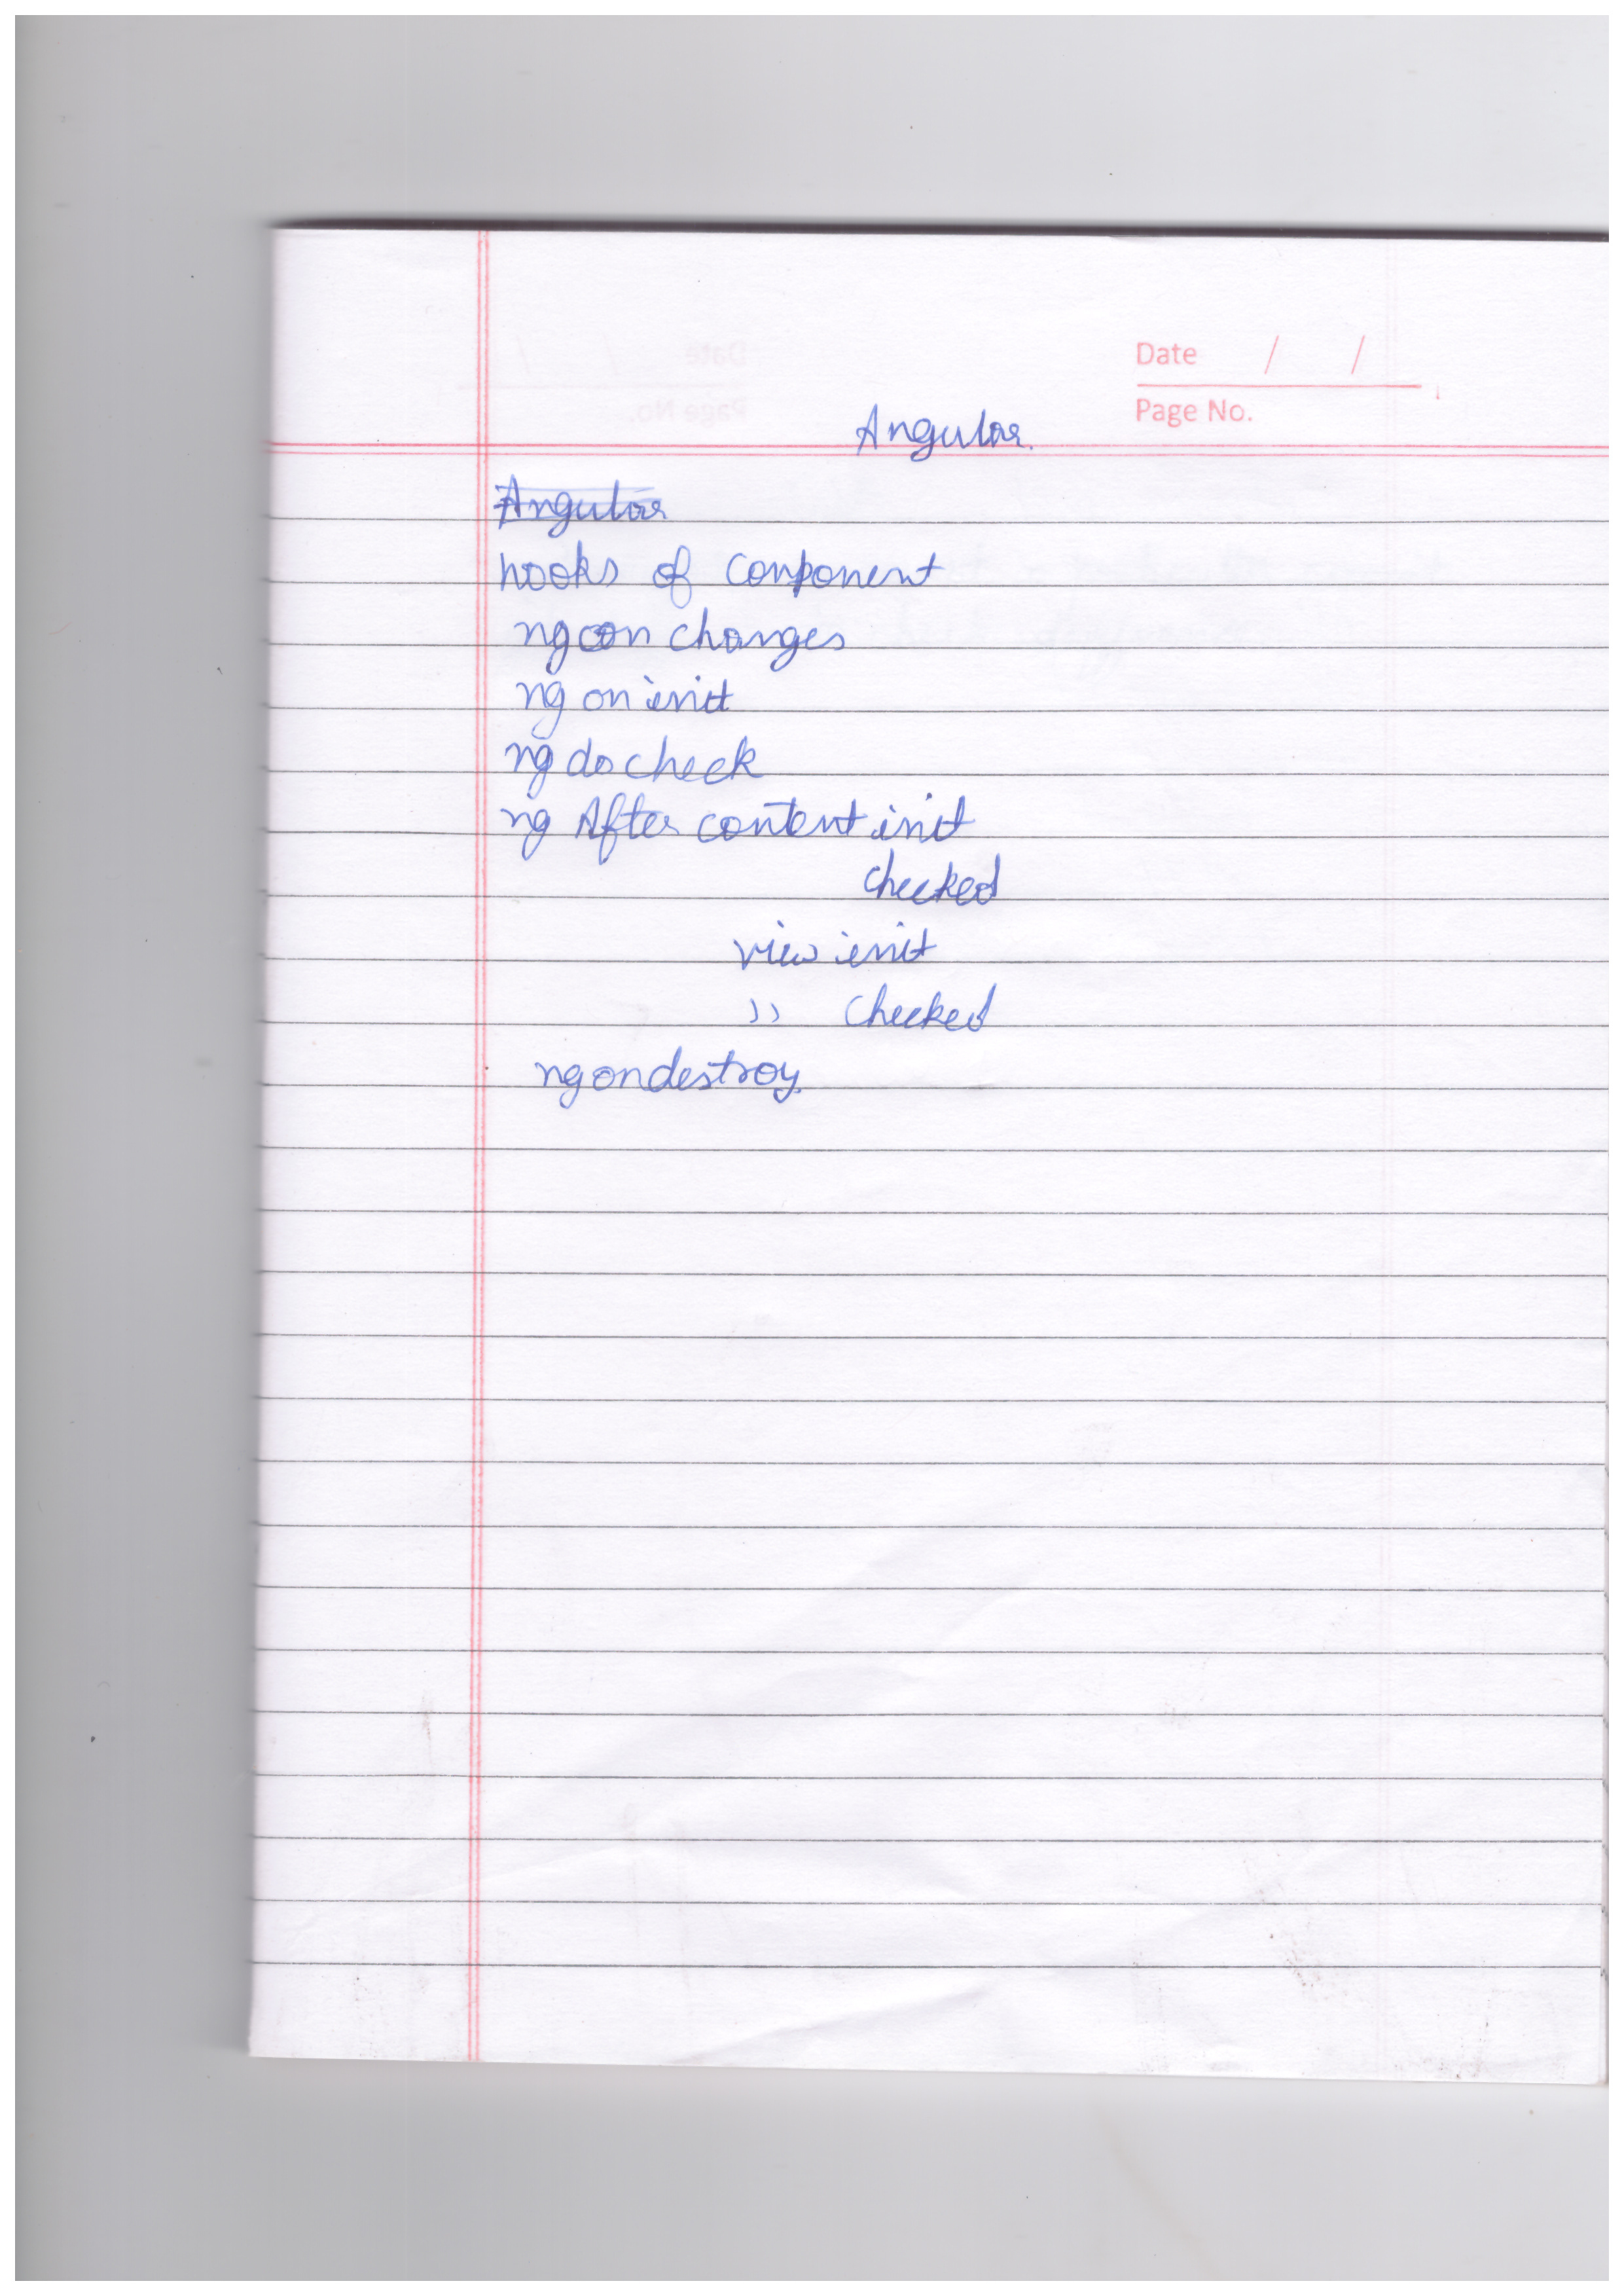 Date / /
Page No.
Angular
Angular
hooks of component
ng on changes
ng on init
ng do check
ng After content init
checked
view init
" checked
ng on destroy